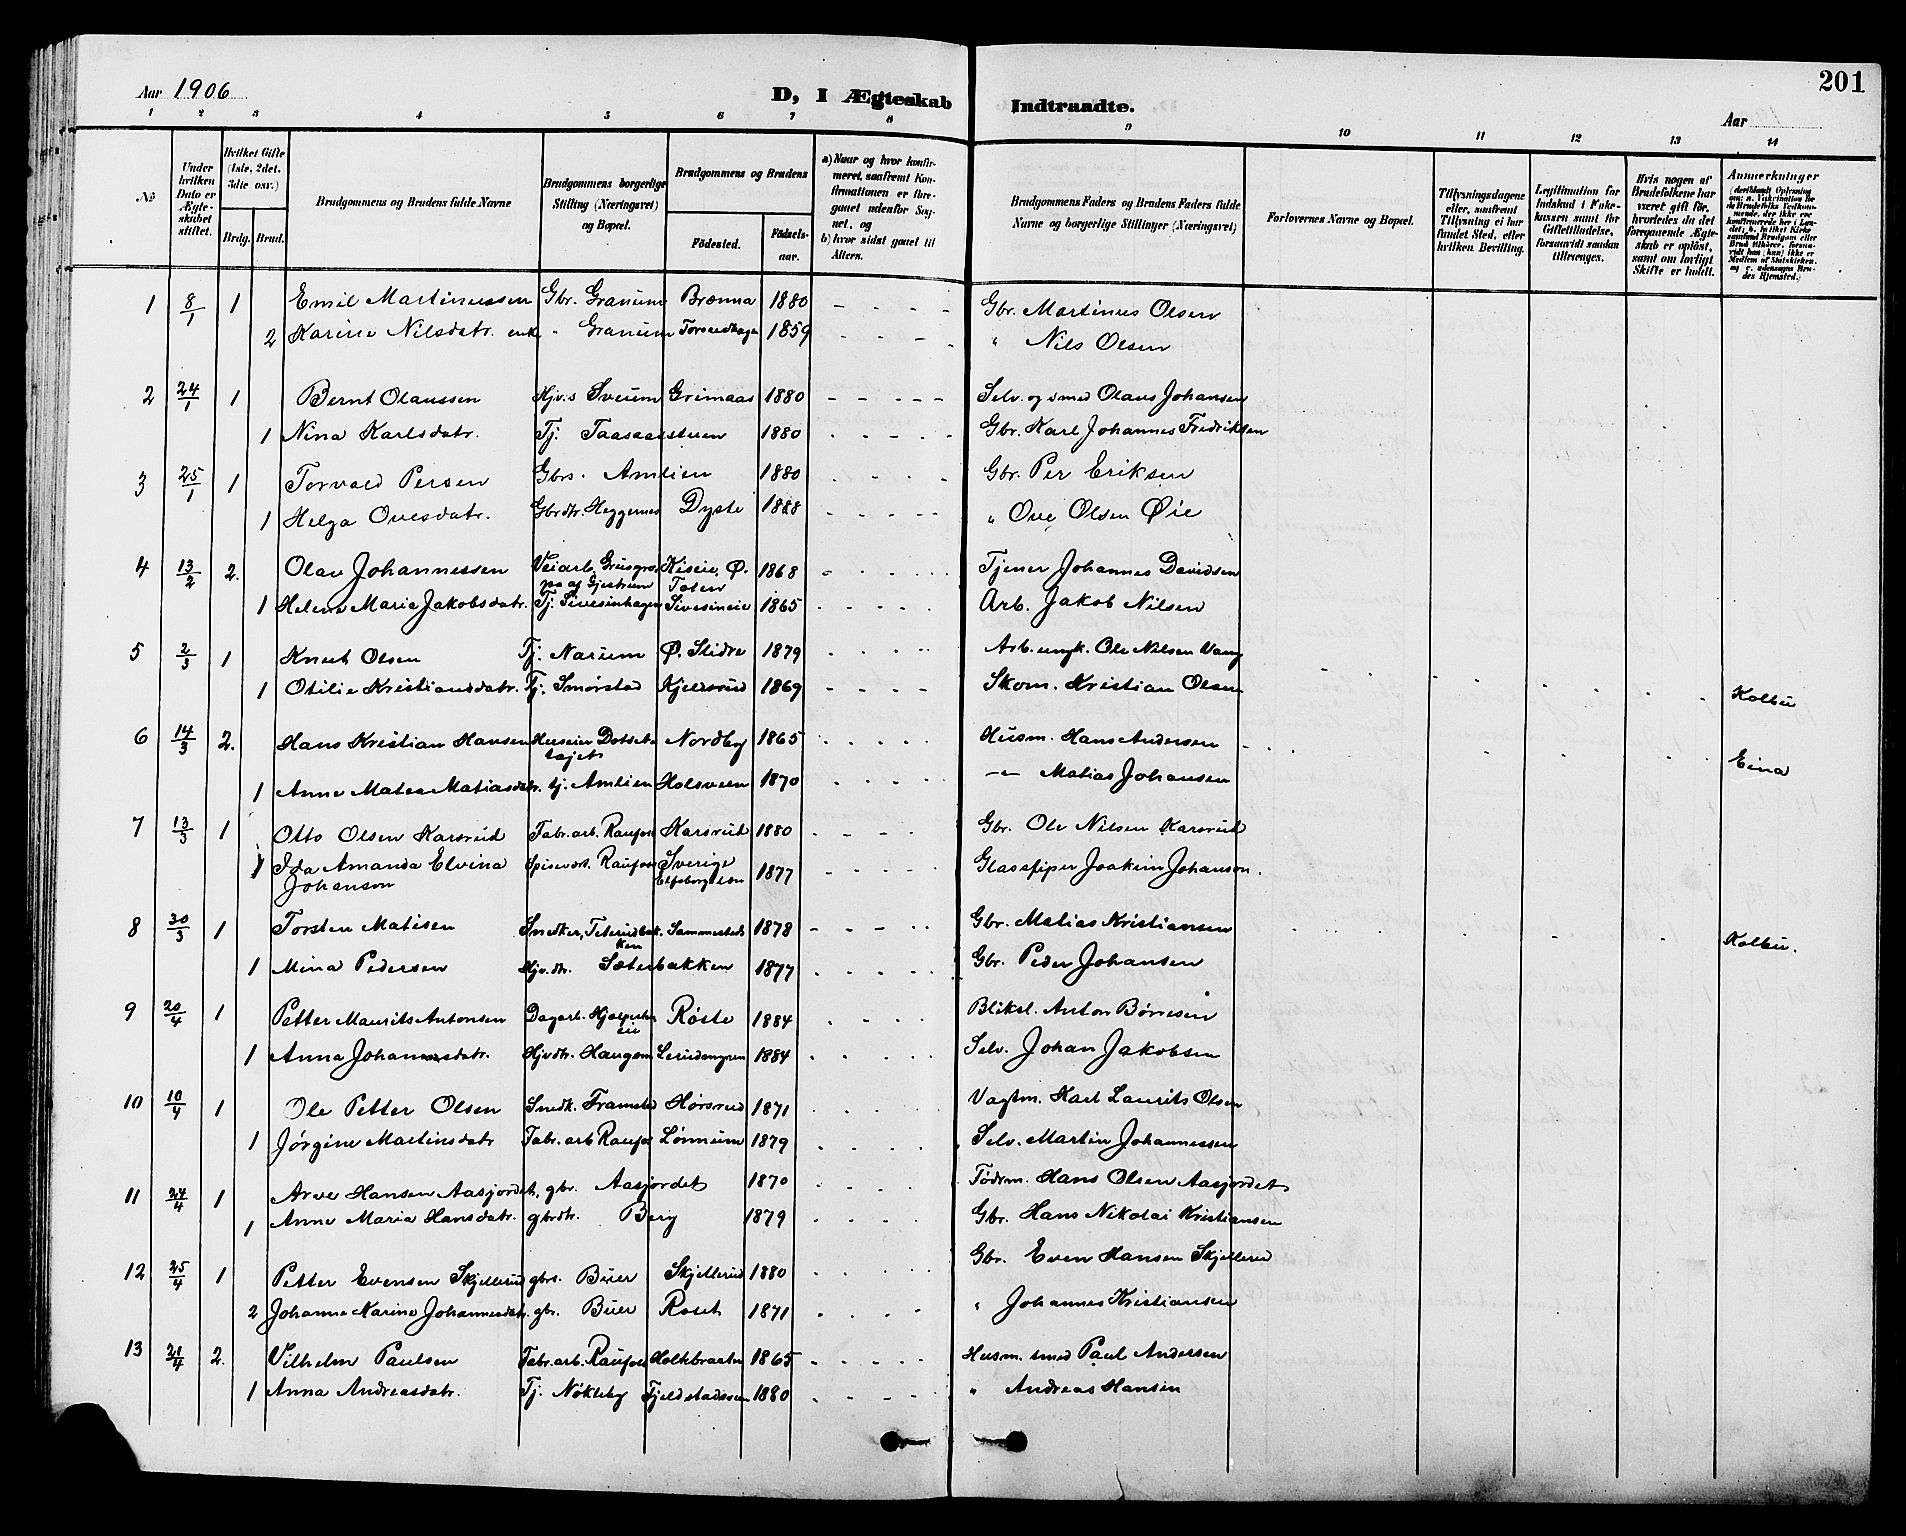 201
Aar 1906 D, I Ægteskab Indtraadte. Aar
1 2 3 4 5 6 7 8 9 10 11 12 13 14
№
Under hvilken Dato er Ægteskabet stiftet.
Hvilket Gifte (1ste, 2det, 3die osv.)
Brdg. Brud.
Brudgommens og Brudens fulde Navne
Brudgommens borgerlige Stilling (Næringsvei) og Bopæl.
Brudgommens og Brudens
Fødested. Fødselsaar.
a) Naar og hvor konfirmeret, saafremt Konfirmationen er foregaaet udenfor Sognet, og
b) hvor sidst gaaet til Alters.
Brudgommens Faders og Brudens Faders fulde Navne og borgerlige Stillinger (Næringsvei)
Forlovernes Navne og Bopæl.
Tillysningsdagene eller, saafremt Tillysning ei har fundet Sted, efter hvilken Bevilling.
Legitimation for Indskud i Enkekassen samt for Giftetilladelse, forsaavidt saadan tiltrænges.
Hvis nogen af Brudefolkene har været gift før, hvorledes da det foregaaende Ægteskab er opløst, samt om lovligt Skifte er holdt.
Anmærkninger
1 8/1 1 Emil Martinussen Gbr. Granum Brænna 1880 Gbr. Martinus Olsen
2 Karine Nilsdatr. enk. " Granum 1859 " Nils Olsen
2 24/1 1 Bernt Olaussen Hjv.s Sveum Grimaas 1880 Selv. og smed Olaus Johansen
1 Nina Karlsdatr. Tj. Taasaasteren 1880 Gbr. Karl Johannes Fredriksen
3 25/1 1 Torvald Persen Gbrs. Amlien 1880 Gbr. Per Eriksen
1 Helga Ovesdatr. Gbrdtr. Heggernes Dyste 1888 " Ove Olsen Øie
4 13/2 2. Olav Johannessen Veiarb. 1868 Tjener Johannes Davidsen
Ø. Toten
1 Helene Marie Jakobsdatr. Tj. Sivesinhagen Sivesineie 1865 Arb. Jakob Nilsen
5 2/3 1 Knut Olsen Tj. Narum Ø. Slidre 1879 Arb. ungk. Ole Nilsen Vang
1 Otilie Kristiansdatr. Tj. Smørstad Kjelsrud 1869 Skom. Kristian Olsen Kolbu
6 14/3 2. Hans Kristian Hansen Huseier Nordby 1865 Husm. Hans Andersen
1 Anne Matea Matiasdatr. tj. Amlien Holsveen 1870 -"- Matias Johansen Eina
7 13/3 1 Otto Olsen Karsrud Fabr. arb. Raufoss Karsrud 1880 Gbr. Ole Nilsen Karsrud
1 Ida Amanda Elvina Johanson Spisevært. Raufoss Sverige Elfsborg län 1877 Glasspiper Joakim Johanson.
8 30/3 1 Torsten Matisen Snedker, Teterudbakken Sammerstad 1878 Gbr. Matias Kristiansen Kolbu.
1 Mina Pedersen Hjv.dtr. Sæterbakken 1877 Gbr. Peder Johansen
9 20/4 1 Petter Maurits Antonsen Dagarb. Røste 1884 Bliksl. Anton Børresen
1 Anna Johannsdatr. Hjvdtr. Haugom Lerudengen 1884 Selv. Johan Jakobsen
10 10/4 1 Ole Petter Olsen Snedk. Framstad Hørsrud 1871 Vagtm. Karl Laurits Olsen
1 Jørgine Martinsdatr Fabr. arb Raufos Lønnum 1879 Selv. Martin Johannessen
11 24/4 1 Arve Hansen Aasjordet, gbr. Aasjordet 1870 Fødrm. Hans Olsen Aasjordet
1 Anne Maria Hansdatr. gbrdtr. Berg 1879 Gbr. Hans Nikolai Kristiansen
12 25/4 1 Petter Evensen Skjellerud gbrs. Buer Skjellerud 1880 Gbr. Even Hansen Skjellerud
2 Johanne Karine Johannesdatr. gbr. Buer Roset 1871 " Johannes Kristiansen
13 21/4 2. Vilhelm Paulsen Fabr. arb. Raufoss Holtebraaten 1865 Husm. smed Paul Andersen
1 Anna Andreasdatr. Tj. Nøkleby Fjeldstadssen 1880 " Andreas Hansen